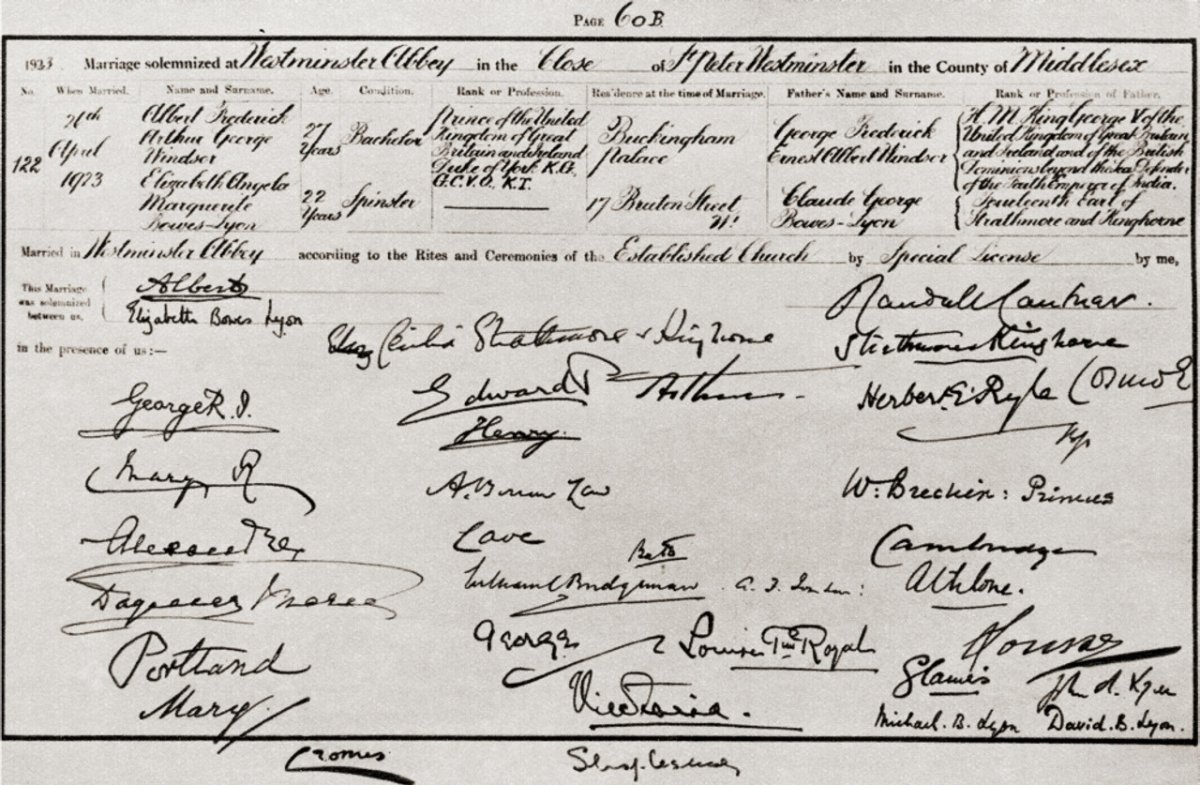 PAGE 60B
1923 Marriage solemnized at Westminster Abbey in the Close of St Peter Westminster in the County of Middlesex
No. When Married. Name and Surname. Age. Condition. Rank or Profession. Residence at the time of Marriage. Father's Name and Surname. Rank or Profession of Father.
122
26th
April
1923
Albert Frederick
Arthur George
Windsor
27
Years
Bachelor
Prince of the United
Kingdom of Great
Britain and Ireland
Duke of York K.G.
G.C.V.O. K.T.
Buckingham
Palace
George Frederick
Ernest Albert Windsor
H. M. King George V of the
United Kingdom of Great Britain
and Ireland and of the British
Dominions beyond the Sea Defender
of the Faith Emperor of India.
Elizabeth Angela
Marguerite
Bowes-Lyon
22
Years
Spinster
17 Bruton Street
W1
Claude George
Bowes-Lyon
Fourteenth Earl of
Strathmore and Kinghorne
Married in Westminster Abbey according to the Rites and Ceremonies of the Established Church by Special License by me,
This Marriage
was solemnized
between us,
Albert
Elizabeth Bowes Lyon
Randall Cantuar.
in the presence of us:—
Cecilia Strathmore & Kinghorne
Strathmore Kinghorne
George R. I.
Edward P
Arthur.
Herbert E. Ryle
Cosmo E
Henry.
Mary R
A. Bonar Law
W: Brechin: Primus
Alexandra
Cave
Cambridge
William C Bridgeman
Athlone.
Portland
George
Louise
Royal
Glamis
Mary
Victoria.
Michael. B. Lyon
David. B. Lyon.
Cromer